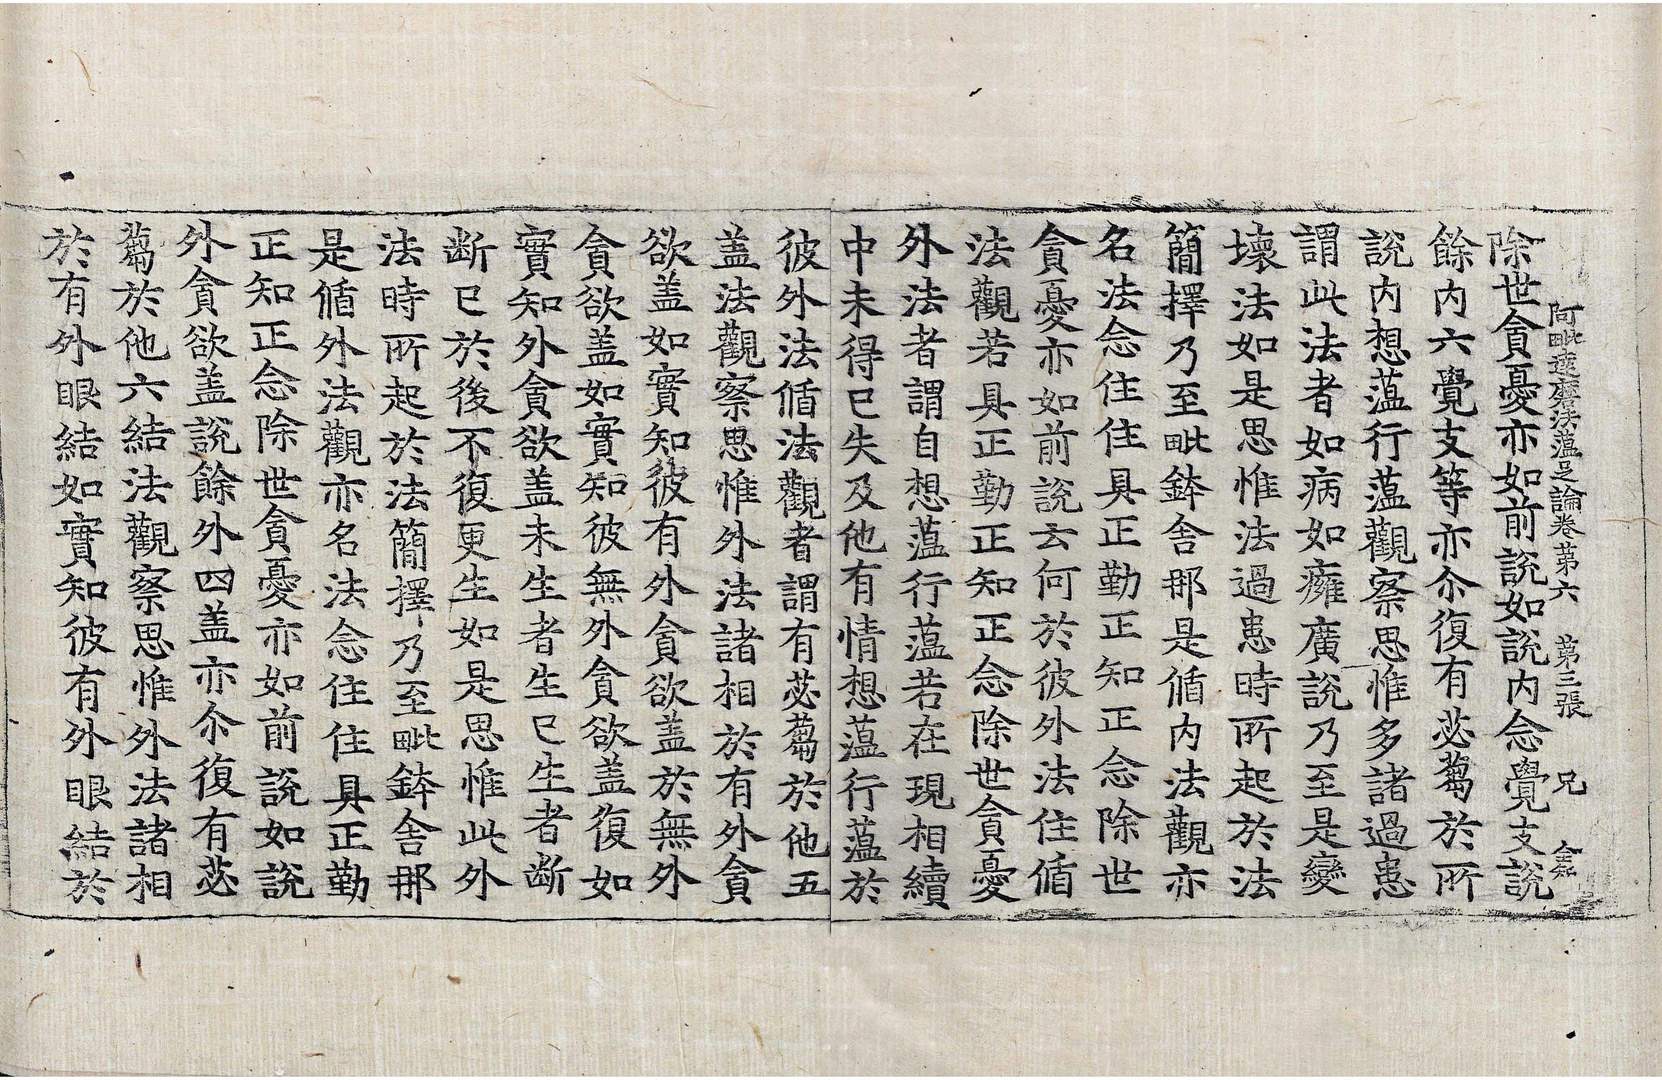 阿毗達磨法蘊足論卷第六 第三張 兄
除世貪憂亦如前說如說內念覺支說
餘內六覺支等亦尒復有苾蒭於所
說內想蘊行蘊觀察思惟多諸過患
謂此法者如病如癰廣說乃至是變
壞法如是思惟法過患時所起於法
簡擇乃至毗鉢舍那是循內法觀亦
名法念住住具正勤正知正念除世
貪憂亦如前說云何於彼外法住循
法觀若具正勤正知正念除世貪憂
外法者謂自想蘊行蘊若在現相續
中未得已失及他有情想蘊行蘊於
彼外法循法觀者謂有苾蒭於他五
盖法觀察思惟外法諸相於有外貪
欲盖如實知彼有外貪欲盖於無外
貪欲盖如實知彼無外貪欲盖復如
實知外貪欲盖未生者生已生者断
断已於後不復更生如是思惟此外
法時所起於法簡擇乃至毗鉢舍那
是循外法觀亦名法念住住具正勤
正知正念除世貪憂亦如前說如說
外貪欲盖說餘外四盖亦尒復有苾
蒭於他六結法觀察思惟外法諸相
於有外眼結如實知彼有外眼結於